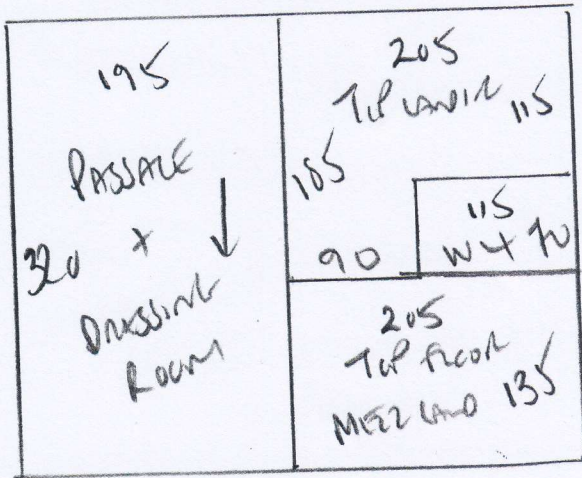 195
PASSAGE
320 +
DRESSING
ROOM
205
TOP LANDIN 115
185
90
115
W4 70
205
TOP FLOOR
MEZZ LAND 135